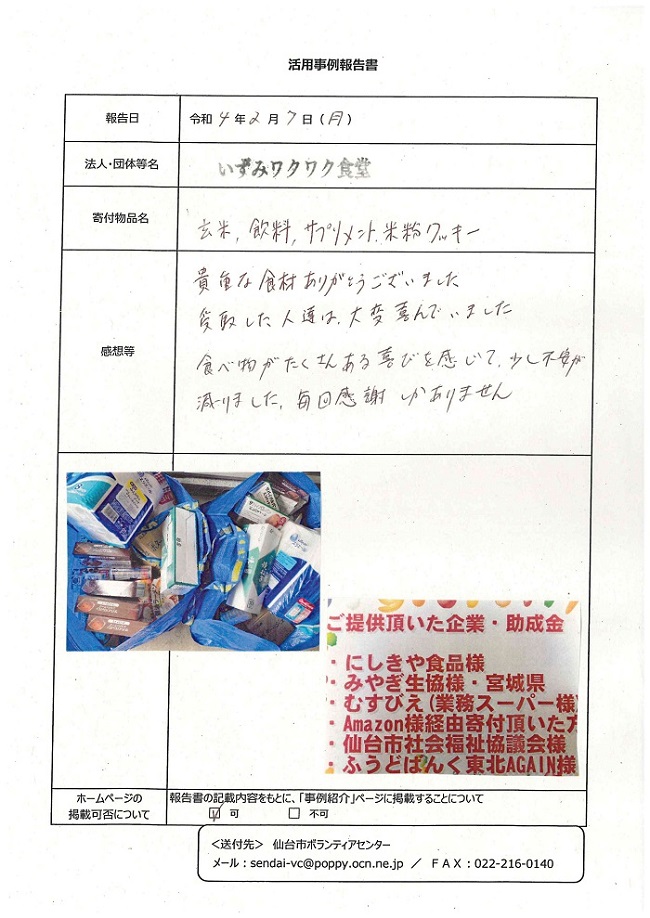 活用事例報告書
報告日
令和 4 年 2 月 7 日 (月)
法人・団体等名
いずみワクワク食堂
寄付物品名
玄米, 飲料, サプリメント, 米粉クッキー
感想等
貴重な食材ありがとうございました
受取した人達は、大変喜んでいました
食べ物がたくさんある喜びを感じて、少し不安が
減りました。毎回感謝しかありません
ご提供頂いた企業・助成金
・にしきや食品様
・みやぎ生協様・宮城県
・むすびえ(業務スーパー様)
・Amazon様経由寄付頂いた方
・仙台市社会福祉協議会様
・ふうどばんく東北AGAIN様
ホームページの
掲載可否について
報告書の記載内容をもとに、「事例紹介」ページに掲載することについて
☑ 可 □ 不可
＜送付先＞ 仙台市ボランティアセンター
メール：sendai-vc@poppy.ocn.ne.jp ／ ＦＡＸ：022-216-0140